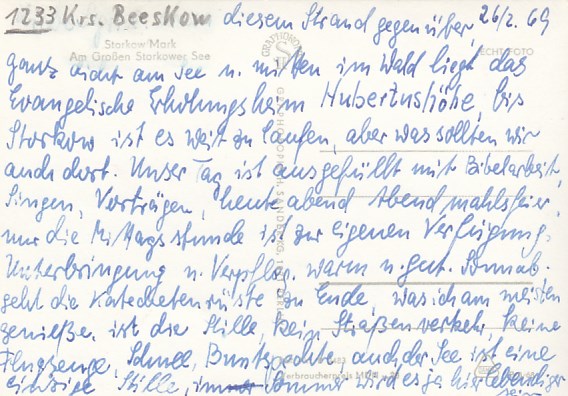 1233 Krs. Beeskow diesem Strand gegenüber, 26/2. 69
Storkow/Mark
Am Großen Storkower See
ECHT FOTO
ganz dicht am See u. mitten im Wald liegt das
Evangelische Erholungsheim Hubertushöhe, bis
Storkow ist es weit zu laufen, aber was sollten wir
auch dort. Unser Tag ist ausgefüllt mit Bibelarbeit,
Singen, Vorträgen, heute abend Abendmahlsfeier,
nur die Mittagsstunde ist zur eigenen Verfügung.
Unterbringung u. Verpfleg. warm u. gut. Sonnab.
geht die Katechetenrüste zu Ende, was ich am meisten
genieße, ist die Stille, kein Straßenverkehr, keine
Flugzeuge, Schnee, Buntspechte, auch der See ist eine
einzige Stille, im Sommer wird es ja hier lebendiger
sein
Verbraucherpreis